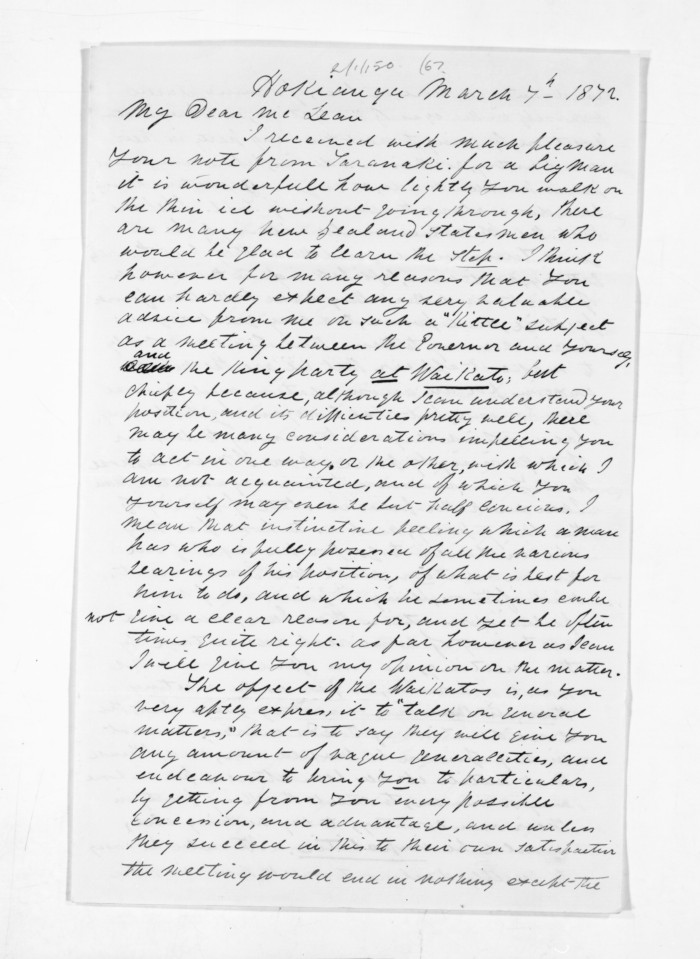 2/1/150 (67
Hokianga March 7th 1872.
My Dear Mc Lean
I received with much pleasure
Your note from Taranaki. for a big man
it is wonderfull how lightly you walk on
the thin ice without going through, there
are many New Zealand Statesmen who
would be glad to learn the step. I think
however for many reasons that You
can hardly expect any very valuable
advice from me on such a "Kittle" subject
as a meeting between the Governor and yourself,
and
the King party at Waikato; but
chiefly because, although I can understand your
position, and its difficulties pretty well, there
may be many considerations impelling you
to act in one way, or the other, with which I
am not acquainted, and of which you
yourself may even be but half concious. I
mean that instinctive feeling which a man
has who is fully posessed of all the various
bearings of his position, of what is best for
him to do, and which he sometimes could
not give a clear reason for, and yet be often
times quite right. as far however as I can
I will give you my opinion on the matter.
The object of the Waikatos is, as you
very aptly expres, it to "talk on general
matters," that is to say they will give you
any amount of vague generalities, and
endeavour to bring you to particulars,
by getting from you every possible
concession, and advantage, and unless
they succeed in this to their own satisfaction
the meeting would end in nothing except the